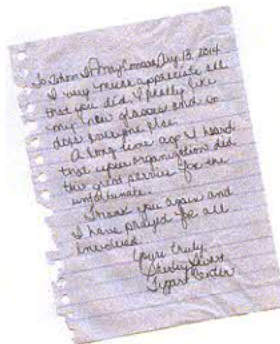 To Whom It May Concern, Aug. 13, 2014
I very much appreciate all
that you did. I really like
my new glasses and so
does everyone else.
A long time ago I heard
that your organization did
this great service for the
unfortunate.
Thank you again and
I have prayed for all
involved.
Yours truly,
Shirley
Tygart Center